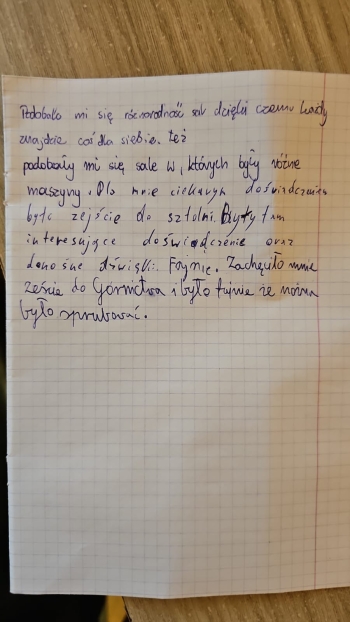 Podobało mi się różnorodność sal dzięki czemu każdy
znajdzie coś dla siebie. też
podobały mi się sale w, których były różne
maszyny. Dla mnie ciekawym doświadczeniem
było zejście do sztolni. Były tam
interesujące doświadczenie oraz
donośne dźwięki. Fajnie. Zachęciło mnie
zeście do Górnictwa i było fajnie że można
było sprubować.